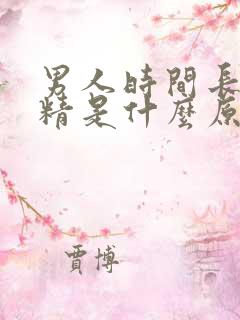 男人時間長
精是什麼原
賈博